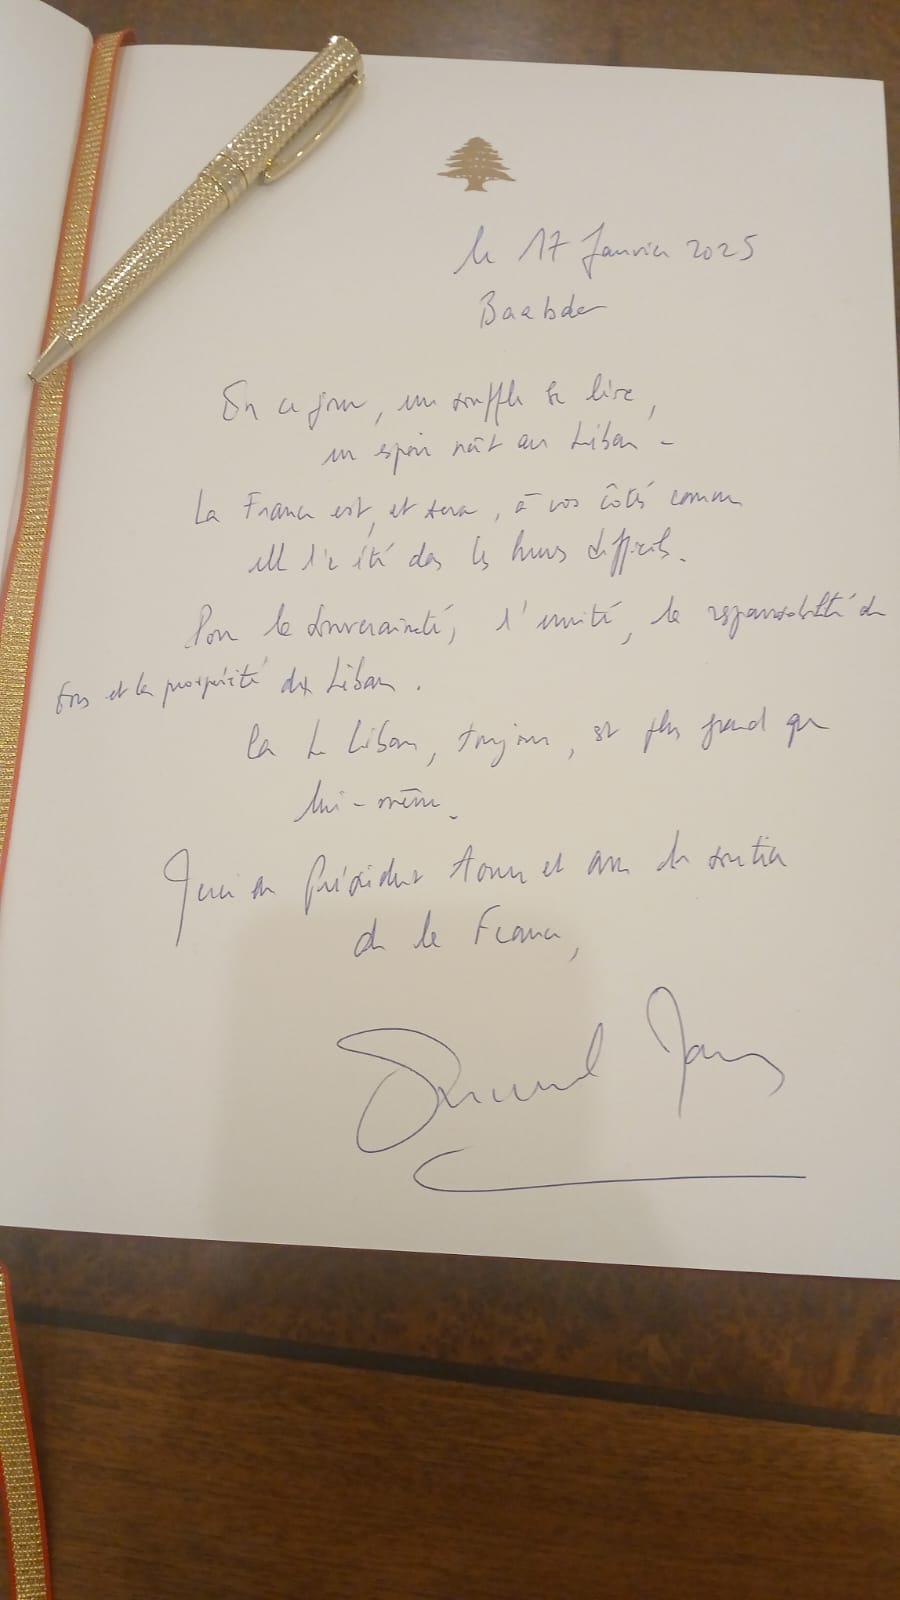 le 17 Janvier 2025
Baabda
En ce jour, un souffle se lève,
un espoir naît au Liban -
La France est, et sera, à vos côtés comme
elle l'a été dans les heures difficiles.
Pour la souveraineté, l'unité, la responsabilité de
tous et la prospérité du Liban.
Car le Liban, toujours, est plus grand que
lui-même.
Merci au Président Aoun et du soutien
de la France,